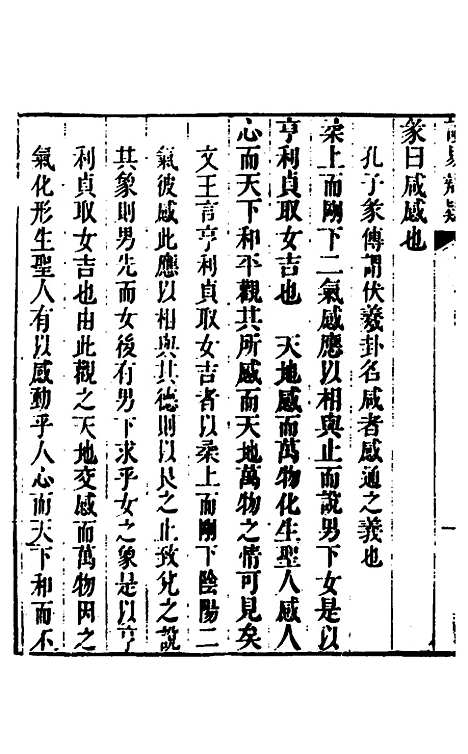 彖曰咸感也
孔子彖傳謂伏羲卦名咸者感通之義也
柔上而剛下二氣感應以相與止而說男下女是以
亨利貞取女吉也　天地感而萬物化生聖人感人
心而天下和平觀其所感而天地萬物之情可見矣
文王言亨利貞取女吉者以柔上而剛下陰陽二
氣彼感此應以相與其德則以艮之止致兌之說
其象則男先而女後有男下求乎女之象是以亨
利貞取女吉也由此觀之天地交感而萬物因之
氣化形生聖人有以感動乎人心而天下和而不